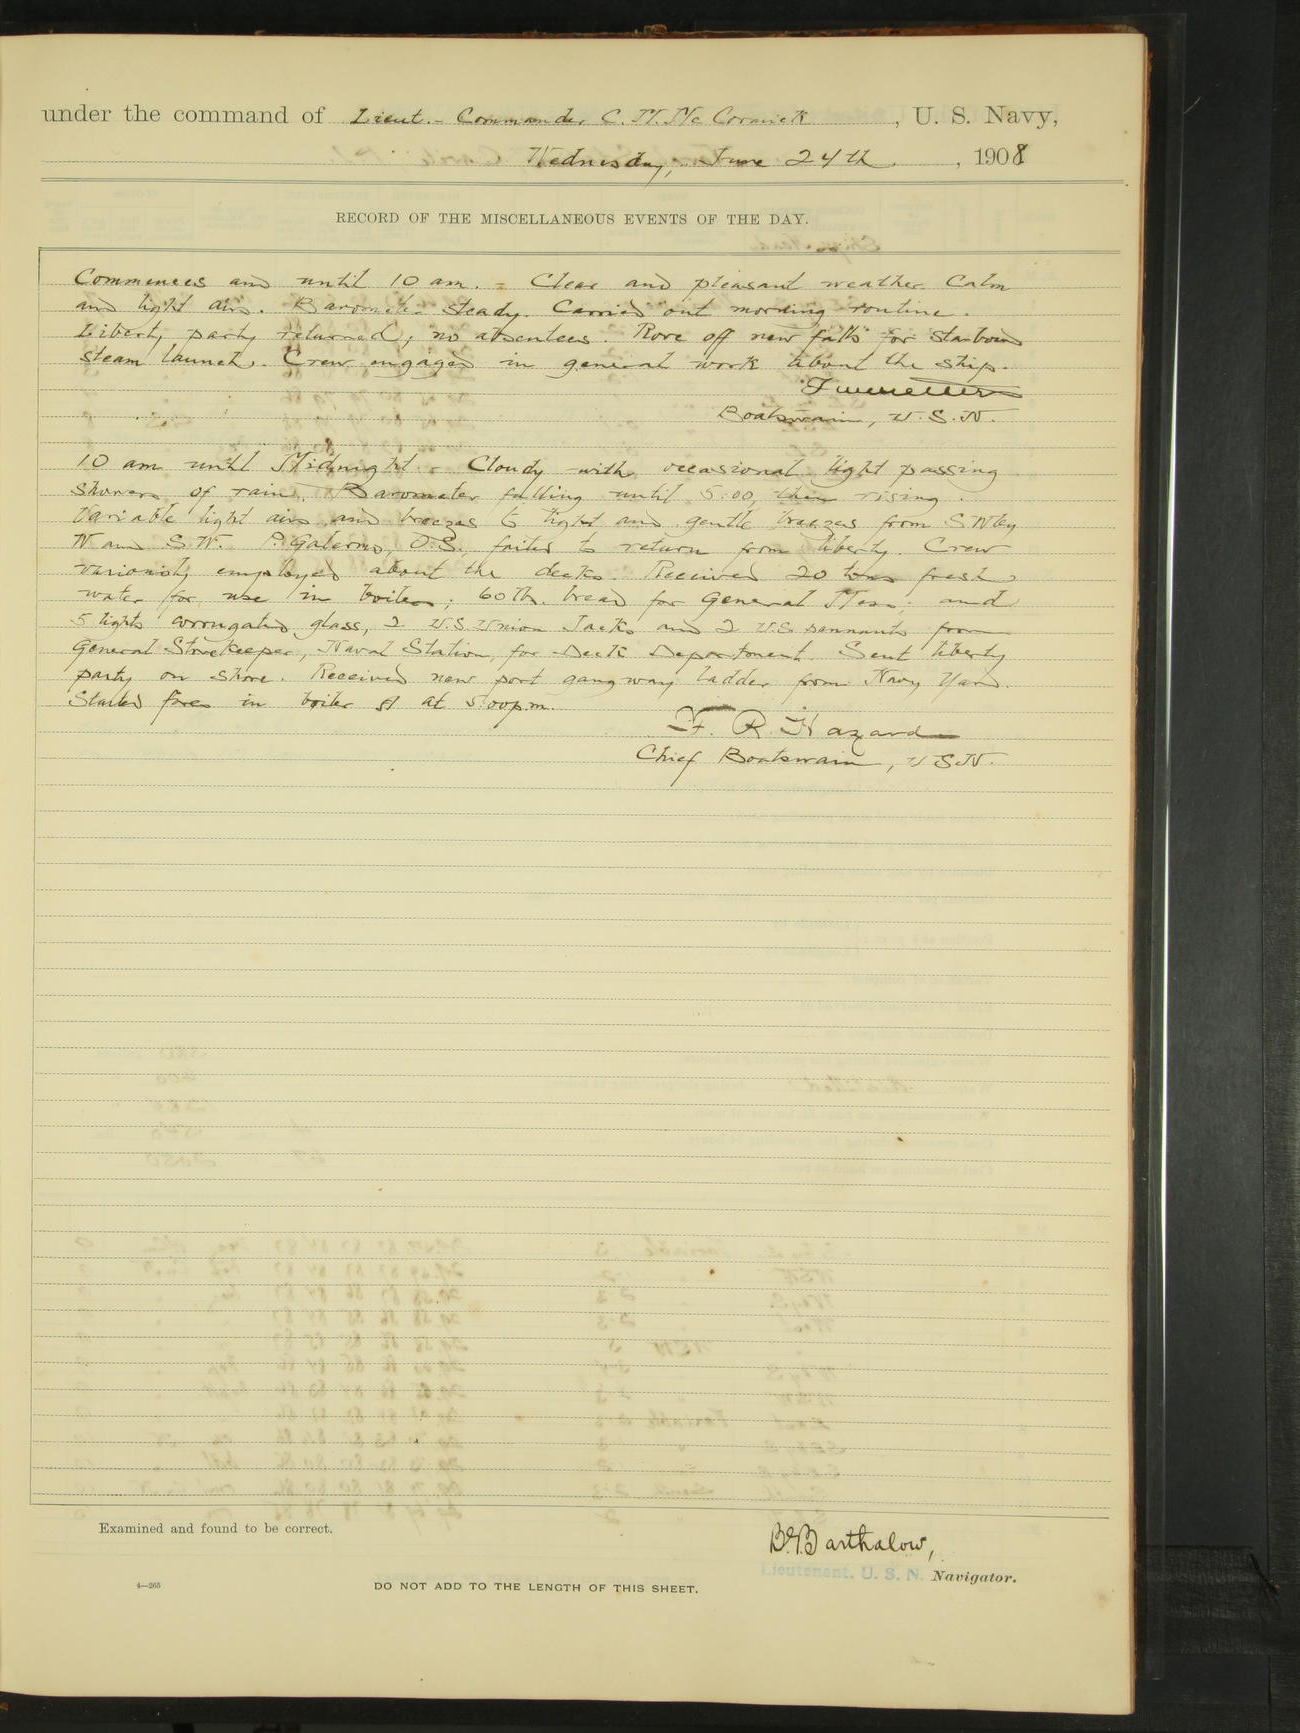 under the command of Lieut.- Commander C. M. Mc Cormick, U. S. Navy,
Wednesday, June 24th, 1908
RECORD OF THE MISCELLANEOUS EVENTS OF THE DAY.
Commences and until 10 am. - Clear and pleasant weather. Calm
and light airs. Barometer steady. Carried out morning routine.
Liberty party returned; no absentees. Rove off new falls for starboard
steam launch. Crew engaged in general work about the ship.
Boatswain, U.S.N.
10 am until Midnight. - Cloudy with occasional light passing
showers of rain. Barometer falling until 5:00, then rising.
Variable light airs and breezes to light and gentle breezes from SWly
W and S.W. P. Galermo, O.S., failed to return from liberty. Crew
variously employed about the decks. Received 20 tons fresh
water for use in boilers; 60 lb. bread for General Mess; and
5 lights corrugated glass, 2 U.S. Union Jacks and 2 U.S. pennants from
General Storekeeper, Naval Station, for Deck Department. Sent liberty
party on shore. Received new port gangway ladder from Navy Yard.
Started fires in boiler A at 5:00 p.m.
F. R. Hazard
Chief Boatswain, U S N.
Examined and found to be correct.
B. B. Barthalow,
Lieutenant, U. S. N. Navigator.
4—265
DO NOT ADD TO THE LENGTH OF THIS SHEET.